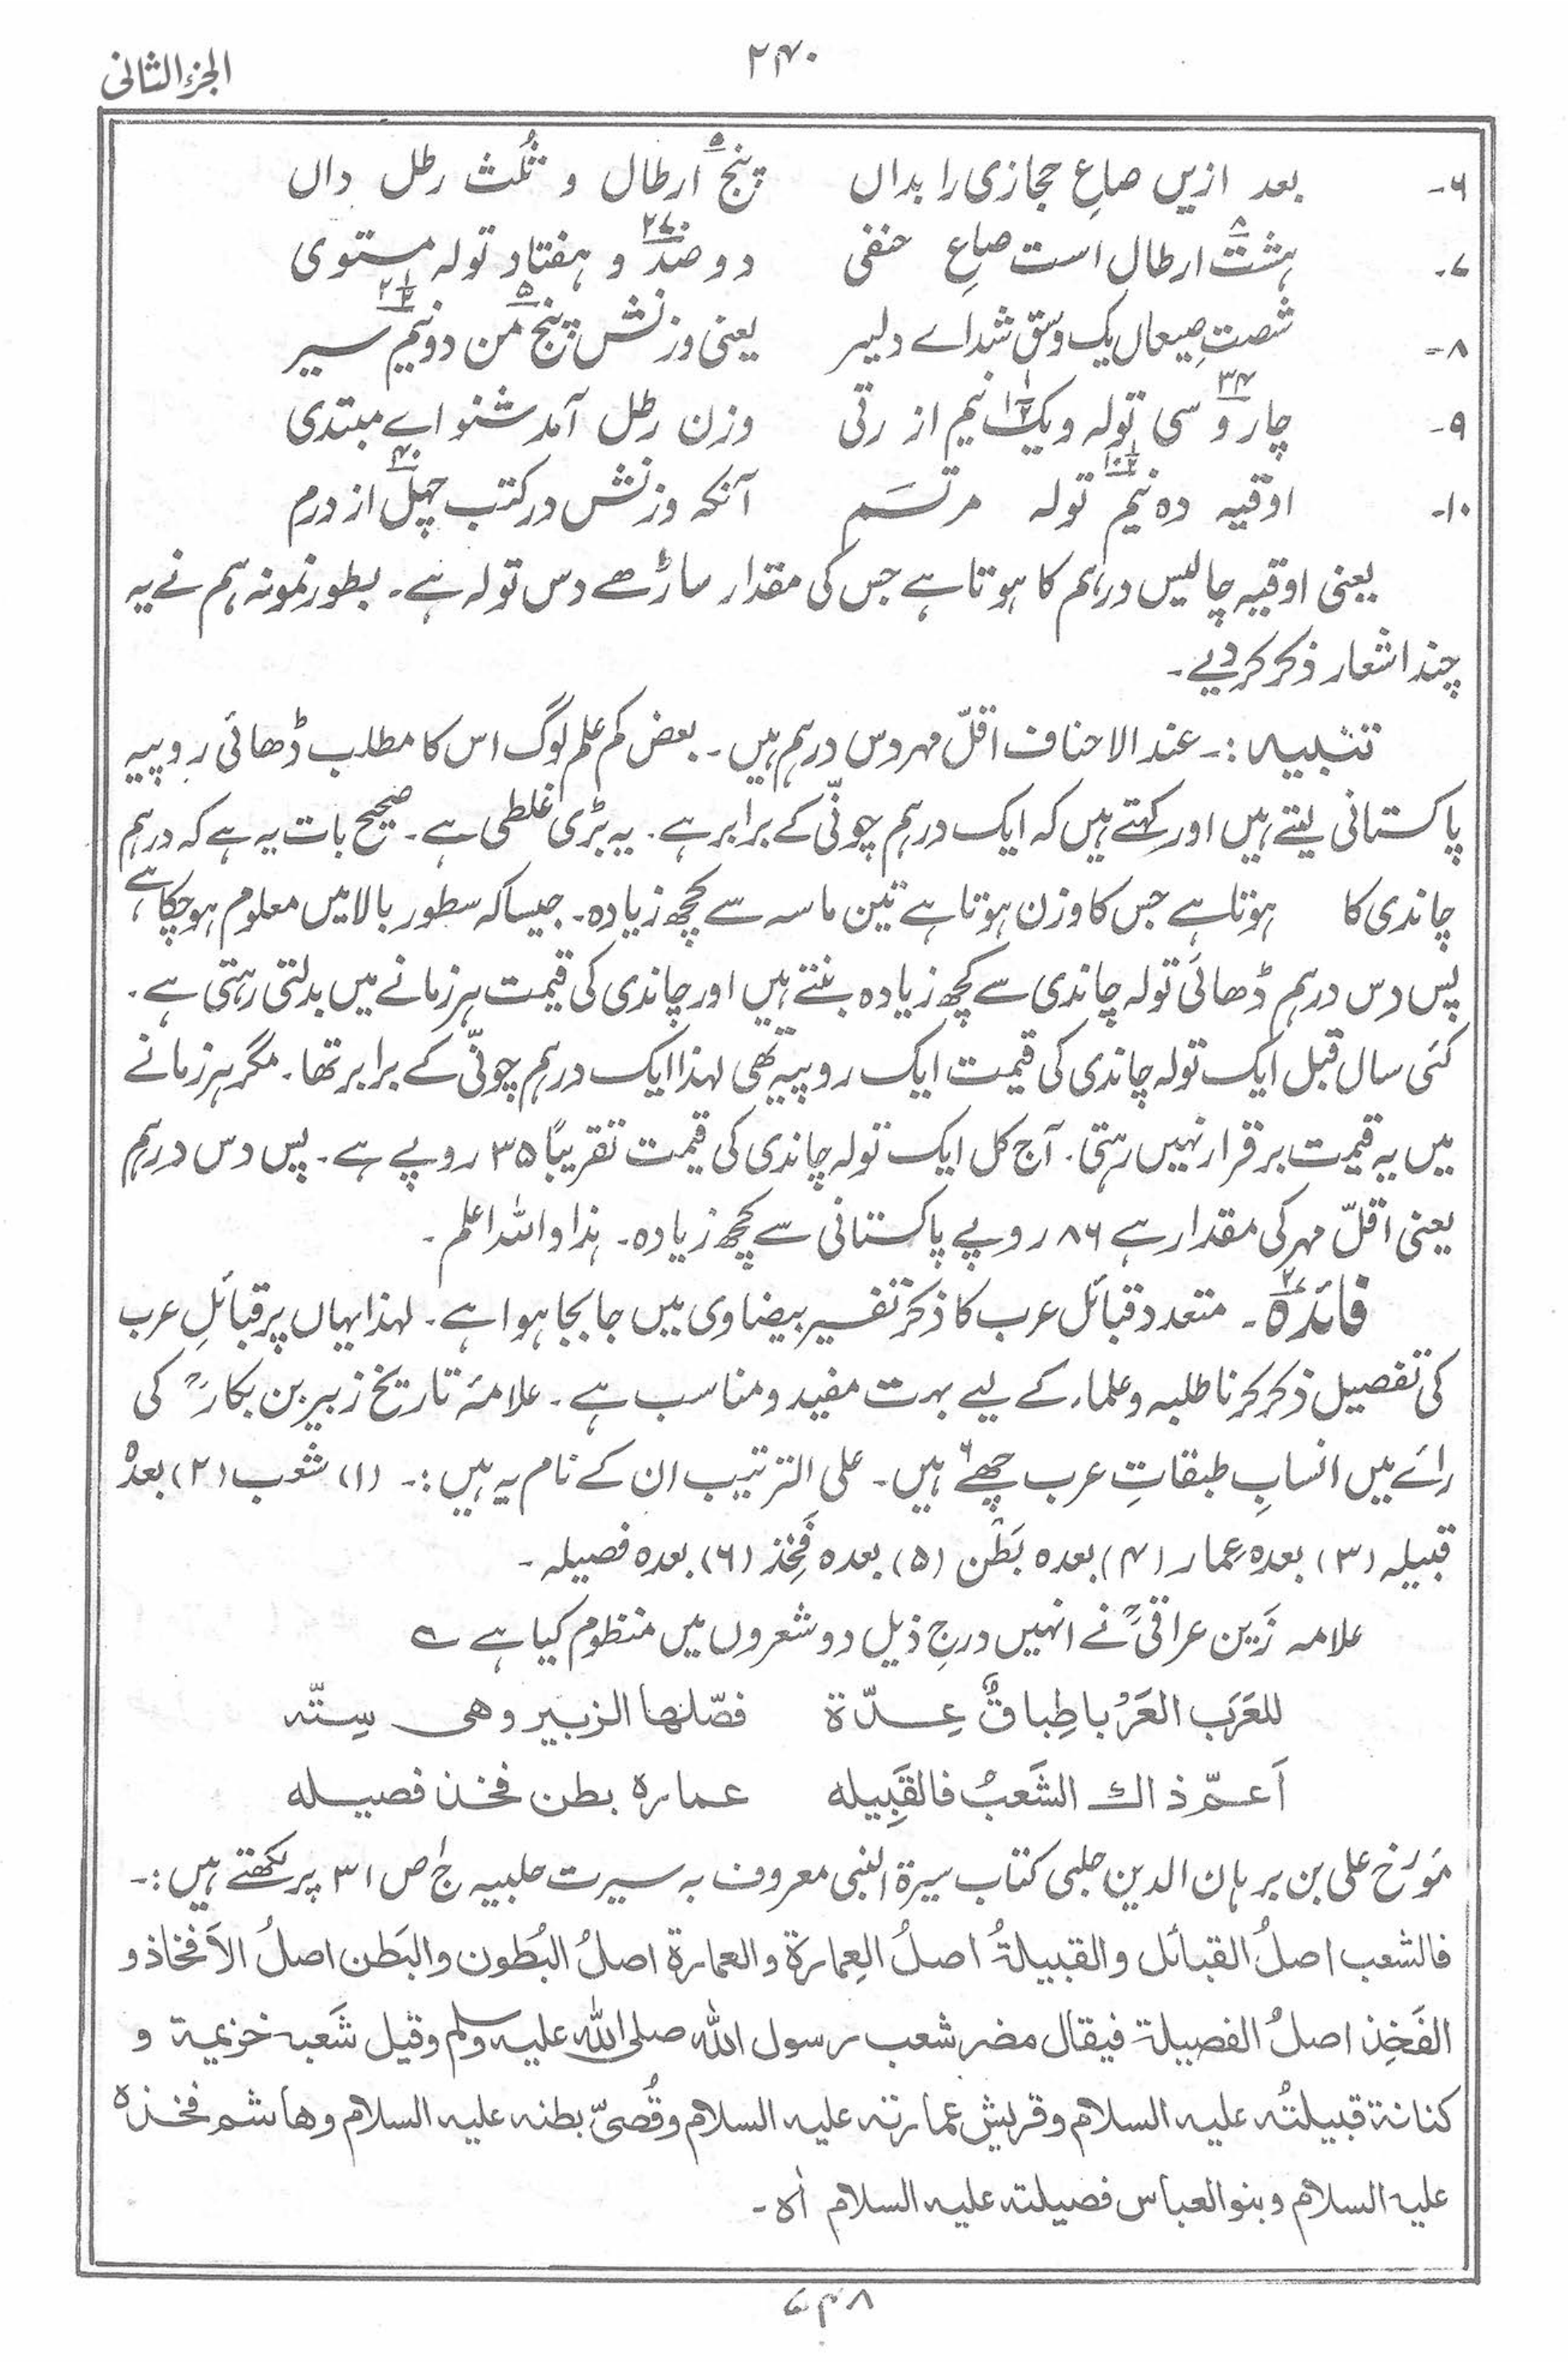 ۲۴۰
الجزء الثانی
۶۔ بعد ازیں صاعِ حجازی را بداں پنج۵ ارطال و ثُلث رطل داں
۷۔ ہشت۸ ارطال است صاعِ حنفی دو صد۲۷۰ و ہفتاد تولہ مستوی
۸۔ شصتِ صیعاں یک وسق شد اے دلیر یعنی وزنش پنج۵ من دو نیم ۲ ۱/۲ سیر
۹۔ چار و ۳۴ سی تولہ و یک ۱ ۱/۲ نیم از رتی وزن رطل آمد شنو اے مبتدی
۱۰۔ اوقیہ دہ نیم ۱۰ ۱/۲ تولہ مرتسَم آنکہ وزنش در کتب چہل۴۰ از درم
یعنی اوقیہ چالیس درہم کا ہوتا ہے جس کی مقدار ساڑھے دس تولہ ہے۔ بطور نمونہ ہم نے یہ
چند اشعار ذکر کر دیے۔
تنبیہ :۔ عند الاحناف اقلّ مہر دس درہم ہیں۔ بعض کم علم لوگ اس کا مطلب ڈھائی روپیہ
پاکستانی لیتے ہیں اور کہتے ہیں کہ ایک درہم چونّی کے برابر ہے۔ یہ بڑی غلطی ہے۔ صحیح بات یہ ہے کہ درہم
چاندی کا ہوتا ہے جس کا وزن ہوتا ہے تین ماسہ سے کچھ زیادہ۔ جیسا کہ سطور بالا میں معلوم ہو چکا ہے،
پس دس درہم ڈھائی تولہ چاندی سے کچھ زیادہ بنتے ہیں اور چاندی کی قیمت ہر زمانے میں بدلتی رہتی ہے۔
کئی سال قبل ایک تولہ چاندی کی قیمت ایک روپیہ تھی لہذا ایک درہم چونّی کے برابر تھا۔ مگر ہر زمانے
میں یہ قیمت برقرار نہیں رہتی۔ آج کل ایک تولہ چاندی کی قیمت تقریباً ۳۵ روپے ہے۔ پس دس درہم
یعنی اقلّ مہر کی مقدار ہے ۸۶ روپے پاکستانی سے کچھ زیادہ۔ ہذا واللہ اعلم۔
فائدہ۔ متعدد قبائل عرب کا ذکر تفسیر بیضاوی میں جا بجا ہوا ہے۔ لہذا یہاں پر قبائلِ عرب
کی تفصیل ذکر کرنا طلبہ و علماء کے لیے بہت مفید و مناسب ہے۔ علامۂ تاریخ زبیر بن بکارؒ کی
رائے میں انسابِ طبقاتِ عرب چھے۶ ہیں۔ علی الترتیب ان کے نام یہ ہیں :۔ (۱) شعب (۲) بعدہٗ
قبیلہ (۳) بعدہ عِمار (۴) بعدہ بَطْن (۵) بعدہ فَخِذ (۶) بعدہ فصیلہ۔
علامہ زَین عراقیؒ نے انہیں درجِ ذیل دو شعروں میں منظوم کیا ہے ؎
للعَرَب العَرْبا طِباقٌ عِدّة فصّلها الزبير وهى سِتّه
اَعمّ ذاك الشَعبُ فالقَبِيله عمارة بطن فخذ فصيله
مؤرخ علی بن برہان الدین حلبی کتاب سیرۃ النبی معروف بہ سیرت حلبیہ ج۱ ص ۳۱ پر لکھتے ہیں :۔
فالشعب اصلُ القبائل والقبيلةُ اصلُ العِمارة والعمارة اصلُ البُطون والبَطن اصلُ الاَفخاذ و
الفَخِذ اصلُ الفصيلة فيقال مضر شعب رسول الله صلى الله عليه وسلم وقيل شَعبه خزيمة و
كنانة قبيلتُه عليه السلام وقريش عمارته عليه السلام وقُصىّ بطنه عليه السلام وهاشم فخذه
عليه السلام وبنو العباس فصيلته عليه السلام اه۔